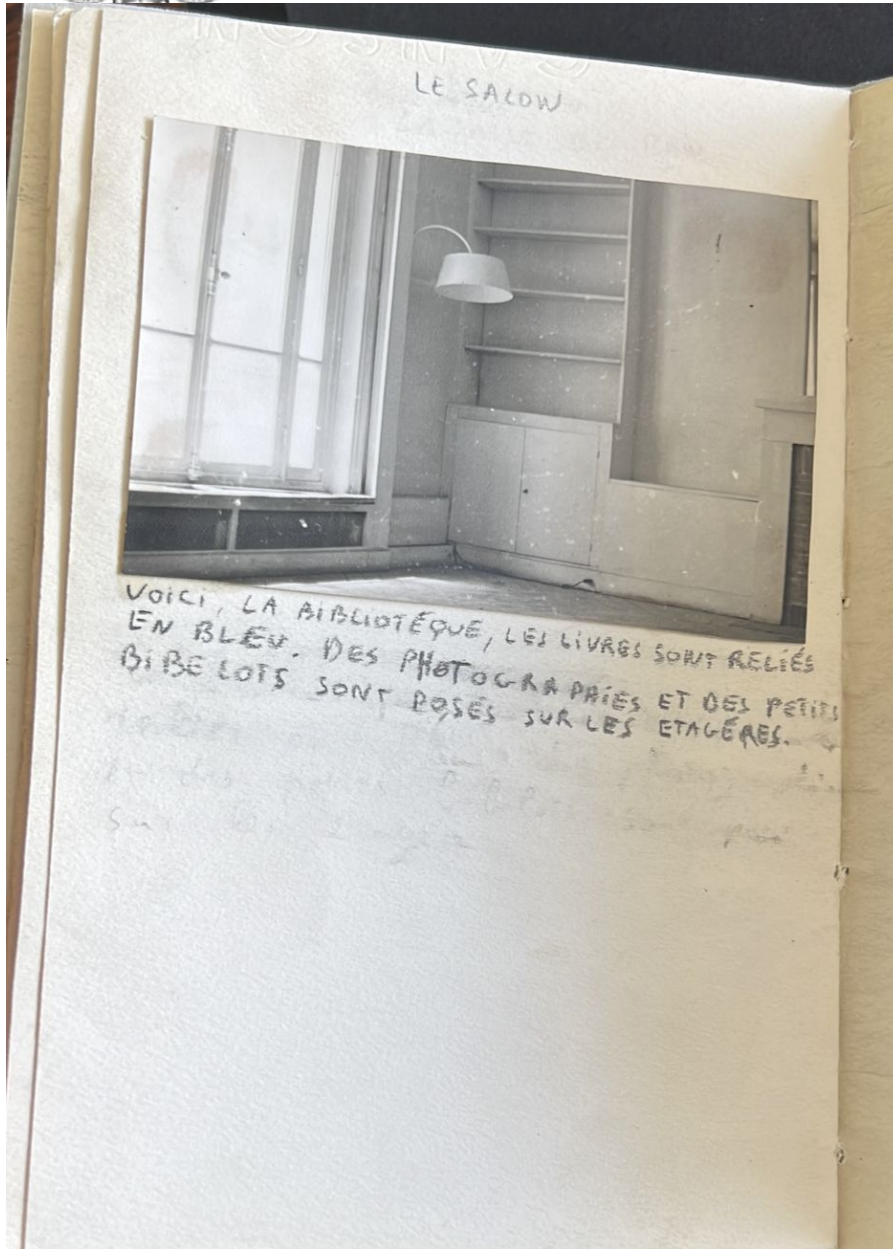 LE SALON
VOICI, LA BIBLIOTÉQUE, LES LIVRES SONT RELIÉS
EN BLEU. DES PHOTOGRAPHIES ET DES PETITS
BIBELOTS SONT POSÉS SUR LES ETAGÉRES.